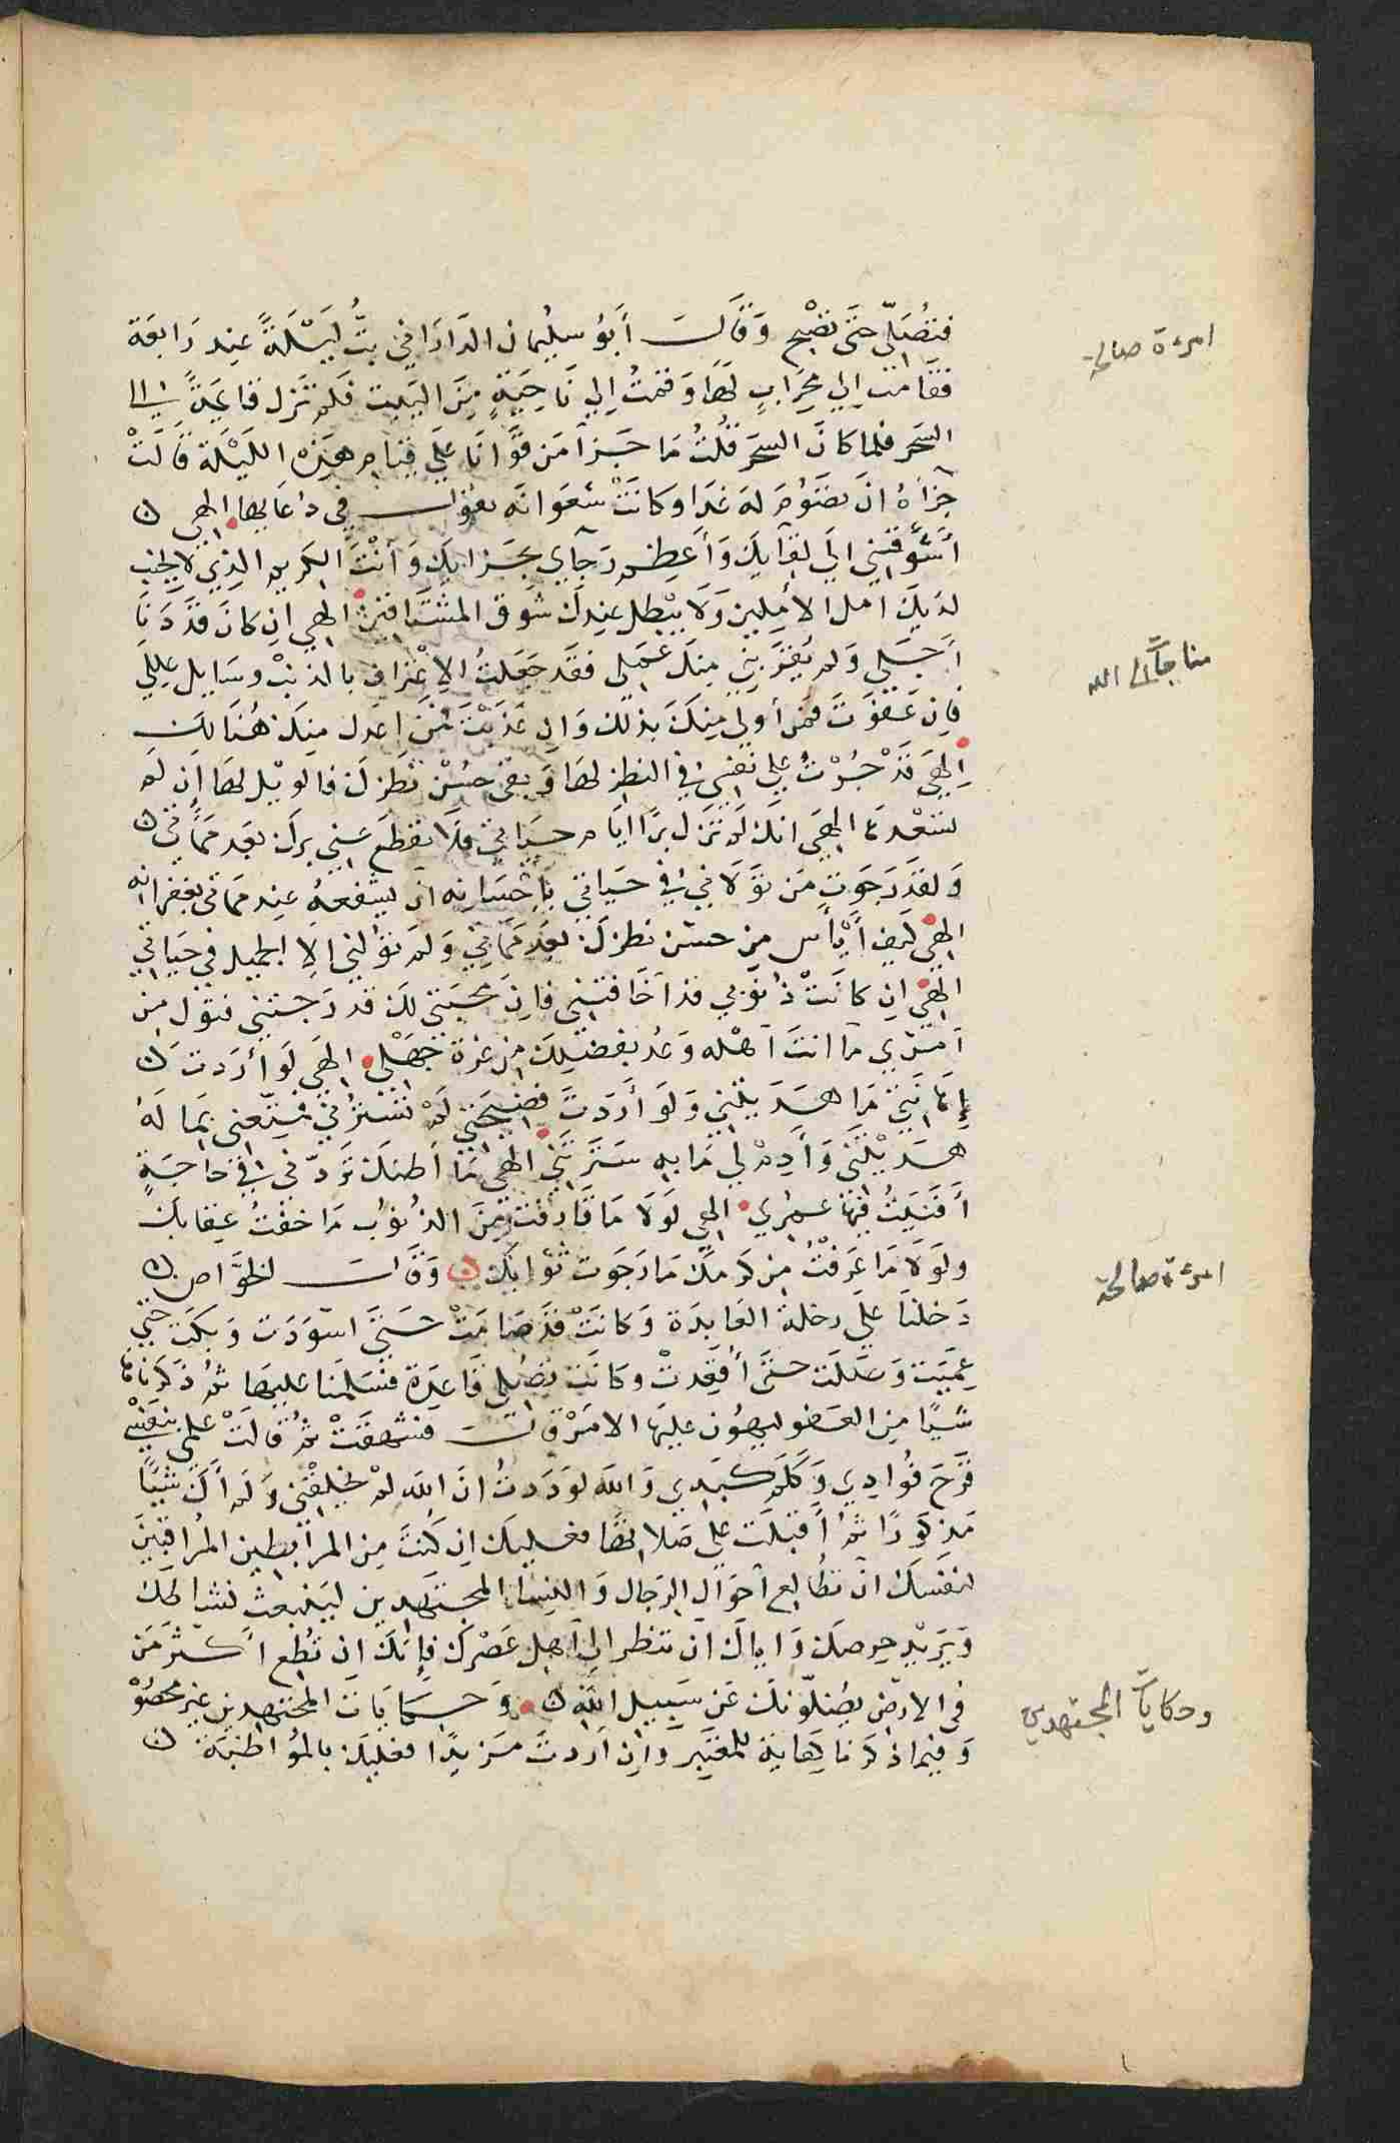 فتصلي حتى تصبح وقال أبو سليمان الداراني بت ليلة عند رابعة
امرءة صالحة
فقامت إلي محراب لها وقمت إلي ناحية من البيت فلم تزل قائمة إلي
السحر فلما كان السحر قلت ما جزآ من قوانا علي قيام هذه الليلة قالت
جزآه ان تصوم له غدا وكانت شعوانه تقول في دعايها الهي
أشوقني الي لقآيك وأعظم رجآي بجزايك وأنت الكريم الذي لا يخيب
لديك امل الأملين ولا يبطل عندك شوق المشتاقين الهي ان كان قد دنا
أجلي ولم يقربني منك عملي فقد جعلت الاعتراف بالذنب وسايل عللي
مناجات الى الله
فان عفوت فمن أولي منك بذلك وان عذبت فمن اعدل منك هنالك
الهي قد جرت علي نفسي في النظر لها وبقي حسن نظرك فالويل لها ان لم
تسعدها الهي انك لم تزل برا ايام حياتي فلا تقطع عني برك بعد مماتي
ولقد رجوت من تولاني في حياتي باحسانه ان يشفعه عند مماتي بغفرانه
الهي كيف أيأس من حسن نظرك بعد مماتي ولم تولني الا الجميل في حياتي
الهي ان كانت ذنوبي قد آخافتني فان محبتي لك قد رجتني فتول من
آمري ما انت آهله وعد بفضلك من غره جهله الهي لو أردت
إهانتي ما هديتني ولو أردت فضيحتي لم تسترني فمتعني بما له
هديتني وأدم لي ما به سترتني الهي ما أظنك تردني في حاجة
أفنيت فيها عمري الهي لولا ما قارفت من الذنوب ما خفت عقابك
ولولا ما عرفت من كرمك ما رجوت ثوابك وقال الخواص
امرءة صالحة
دخلنا علي رحلة العابدة وكانت قد صامت حتى اسودت وبكت حتى
عميت وصلت حتى أقعدت وكانت تصلي قاعدة فسلمنا عليها ثم ذكرناها
شيا من العفو ليهون عليها الامر قال فشهقت ثم قالت علمي بنفسي
قرح فوادي وكلم كبدي والله لوددت ان الله لم يخلقني ولم أك شيا
مذكورا ثم أقبلت علي صلاتها فعليك ان كنت من المرابطين المراقبين
لنفسك ان تطالع آحوال الرجال والنسا المجتهدين لينبعث نشاطك
ويزيد حرصك واياك ان تنظر الي آهل عصرك فانك ان تطع أكثر من
في الارض يضلونك عن سبيل الله وحكايات المجتهدين غير محصوة
وحكايات المجتهدين
وفيما ذكرنا كفاية للمعتبر وان اردت مزيدا فعليك بالمواظبة